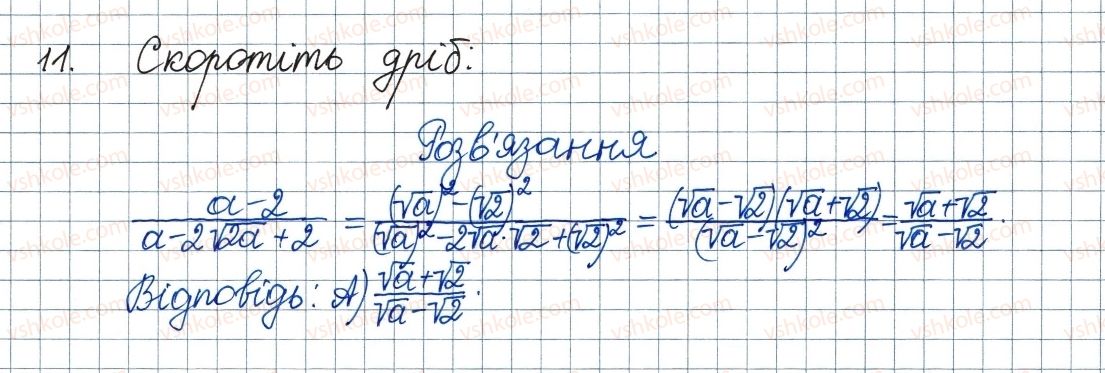 11. Скоротіть дріб:
Розв'язання
(a-2)/(a-2√2a+2) = ((√a)²-(√2)²)/((√a)²-2√a·√2+(√2)²) = ((√a-√2)(√a+√2))/((√a-√2)²) = (√a+√2)/(√a-√2).
Відповідь: А) (√a+√2)/(√a-√2).